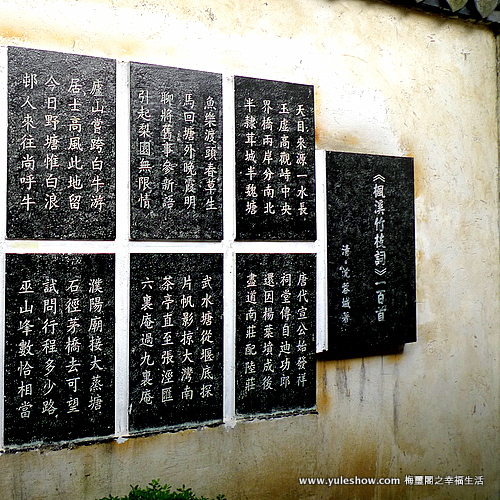 《楓溪竹枝詞》一百首
清·沈蓉城著
天目來源一水長
玉虛高觀峙中央
界橋兩岸分南北
半隸茸城半魏塘
魚樂渡頭春草生
馬回塘外晚霞明
聊將舊事參新語
引起梨園無限情
廬山實跨白牛游
居士高風此地留
今日野塘惟白浪
邨人來往尚呼牛
唐代宣公始發祥
祠堂傳自迪功郎
還因楊葉墳成後
盡道南莊配陸莊
武水塘從堰底探
片帆影掠大灣南
茶亭直至張涇匯
六裏庵過九裏庵
濮陽廟接大蒸塘
石徑茅橋去可望
試問行程多少路
巫山峰數恰相當
www.yuleshow.com 梅璽閣之幸福生活